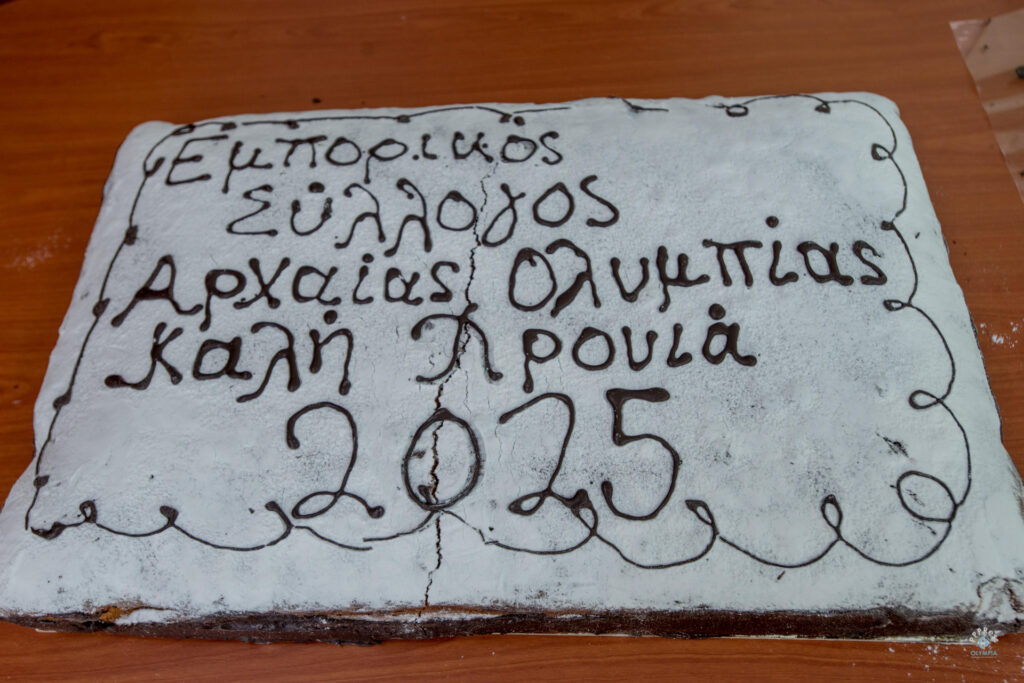 Εμπορικός
Σύλλογος
Αρχαίας Ολυμπίας
Καλή Χρονιά
2025
OLYMPIA